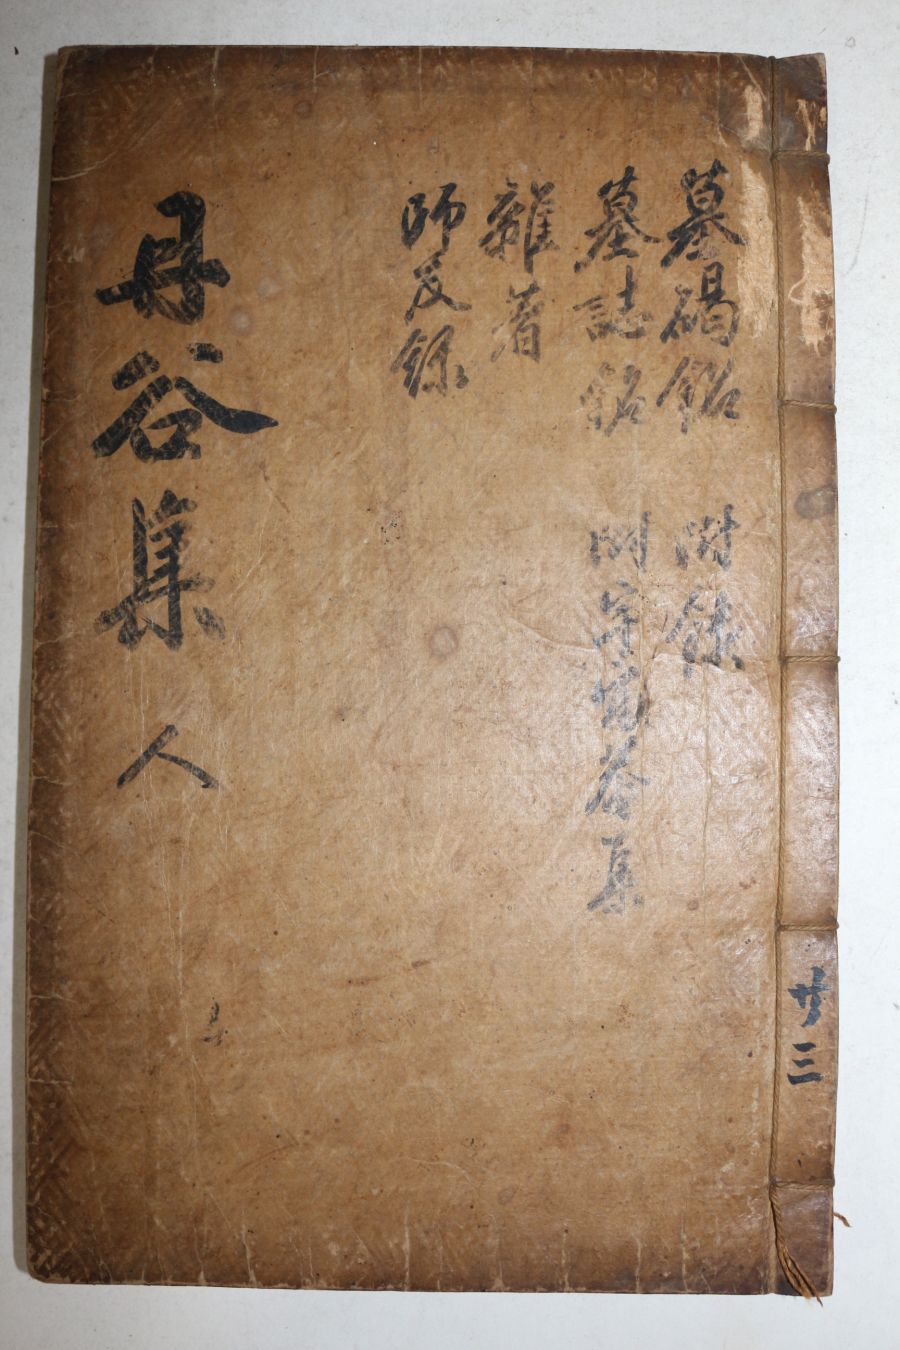 墓碣銘 附錄
墓誌銘 附字窩谷集
雜著
師友錄
丹谷集 人
廿三